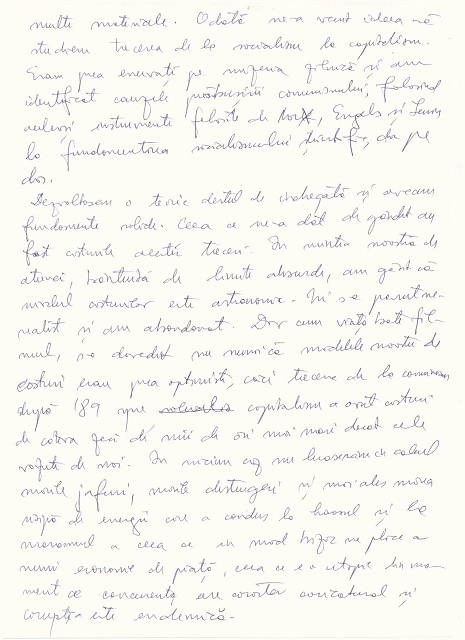 multe materiale. Odată ne-a venit ideea să
studiem trecerea de la socialism la capitalism.
Eram prea enervați pe mizeria zilnică și am
identificat cauzele prăbușirii comunismului, folosind
aceleași instrumente folosite de Marx, Engels și Lenin
la fundamentarea socialismului științific, dar pe
dos.
Dezvoltasem o teorie destul de închegată și aveam
fundamente solide. Ceea ce ne-a dat de gândit au
fost costurile acestei treceri. În mintea noastră de
atunci, înțintuită de limite absurde, am găsit că
nivelul costurilor este astronomic. Ni s-a părut nerealist
și am abandonat. Dar cum viața bate filmul,
s-a dovedit nu numai că modelele noastre de
costuri erau prea optimiste, căci trecerea de la comunism
după '89 spre capitalism a avut costuri
de câteva zeci de mii de ori mai mari decât cele
văzute de noi. În niciun caz nu luaserăm în calcul
marile jafuri, marile distrugeri și mai ales marea
risipă de energii care a condus la haosul și la
marasmul a ceea ce în mod bizar ne place a
numi economie de piață, ceea ce e o utopie în moment
ce concurența are caracter caricatural și
corupția este endemică.